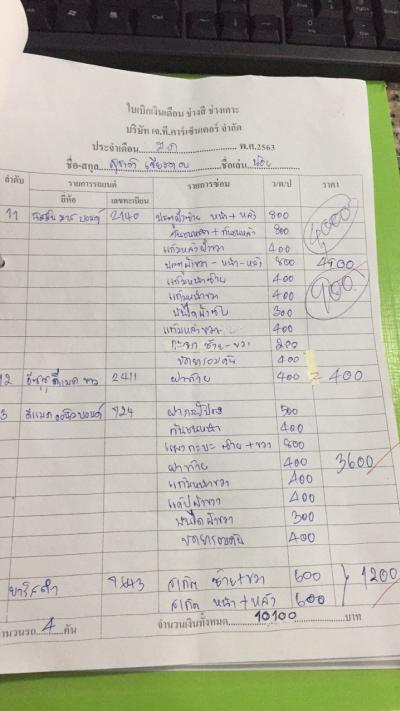 ใบเบิกเงินเดือน ช่างสี ช่างเคาะ
บริษัท เจ.ที.คาร์เซ็นเตอร์ จำกัด
ประจำเดือน พ.ศ.2563
ชื่อ-สกุล ชื่อเล่น น้อย
ลำดับ รายการรถยนต์ รายการซ่อม ว/ด/ป ราคา
ยี่ห้อ เลขทะเบียน
11 2140 ประตูซ้าย หน้า+หลัง 800 4000
กันชนหน้า + กันชนหลัง 800
แก้มหลังขวา 400
ประตูขวา - หน้า-หลัง 800 4900
แก้มหน้าซ้าย 400 900
แก้มหน้าขวา 400
บันได 300
แก้มหลังขวา 400
กระจก ซ้าย-ขวา 200
400
12 อีซูซุ ดีแมค ขาว 2411 ฝาท้าย 400 = 400
3 ดีแมค 924 ฝากระโปรง 500
กันชนหน้า 400
กระบะ ซ้าย+ขวา 800
ฝาท้าย 400 3600
แก้มหน้าขวา 400
แค๊ปขวา 400
บันไดขวา 300
400
ยาริสดำ 9843 สเกิต ซ้าย+ขวา 600 1200
สเกิต หน้า+หลัง 600
จำนวนรถ 4 คัน จำนวนเงินทั้งหมด 10100 บาท